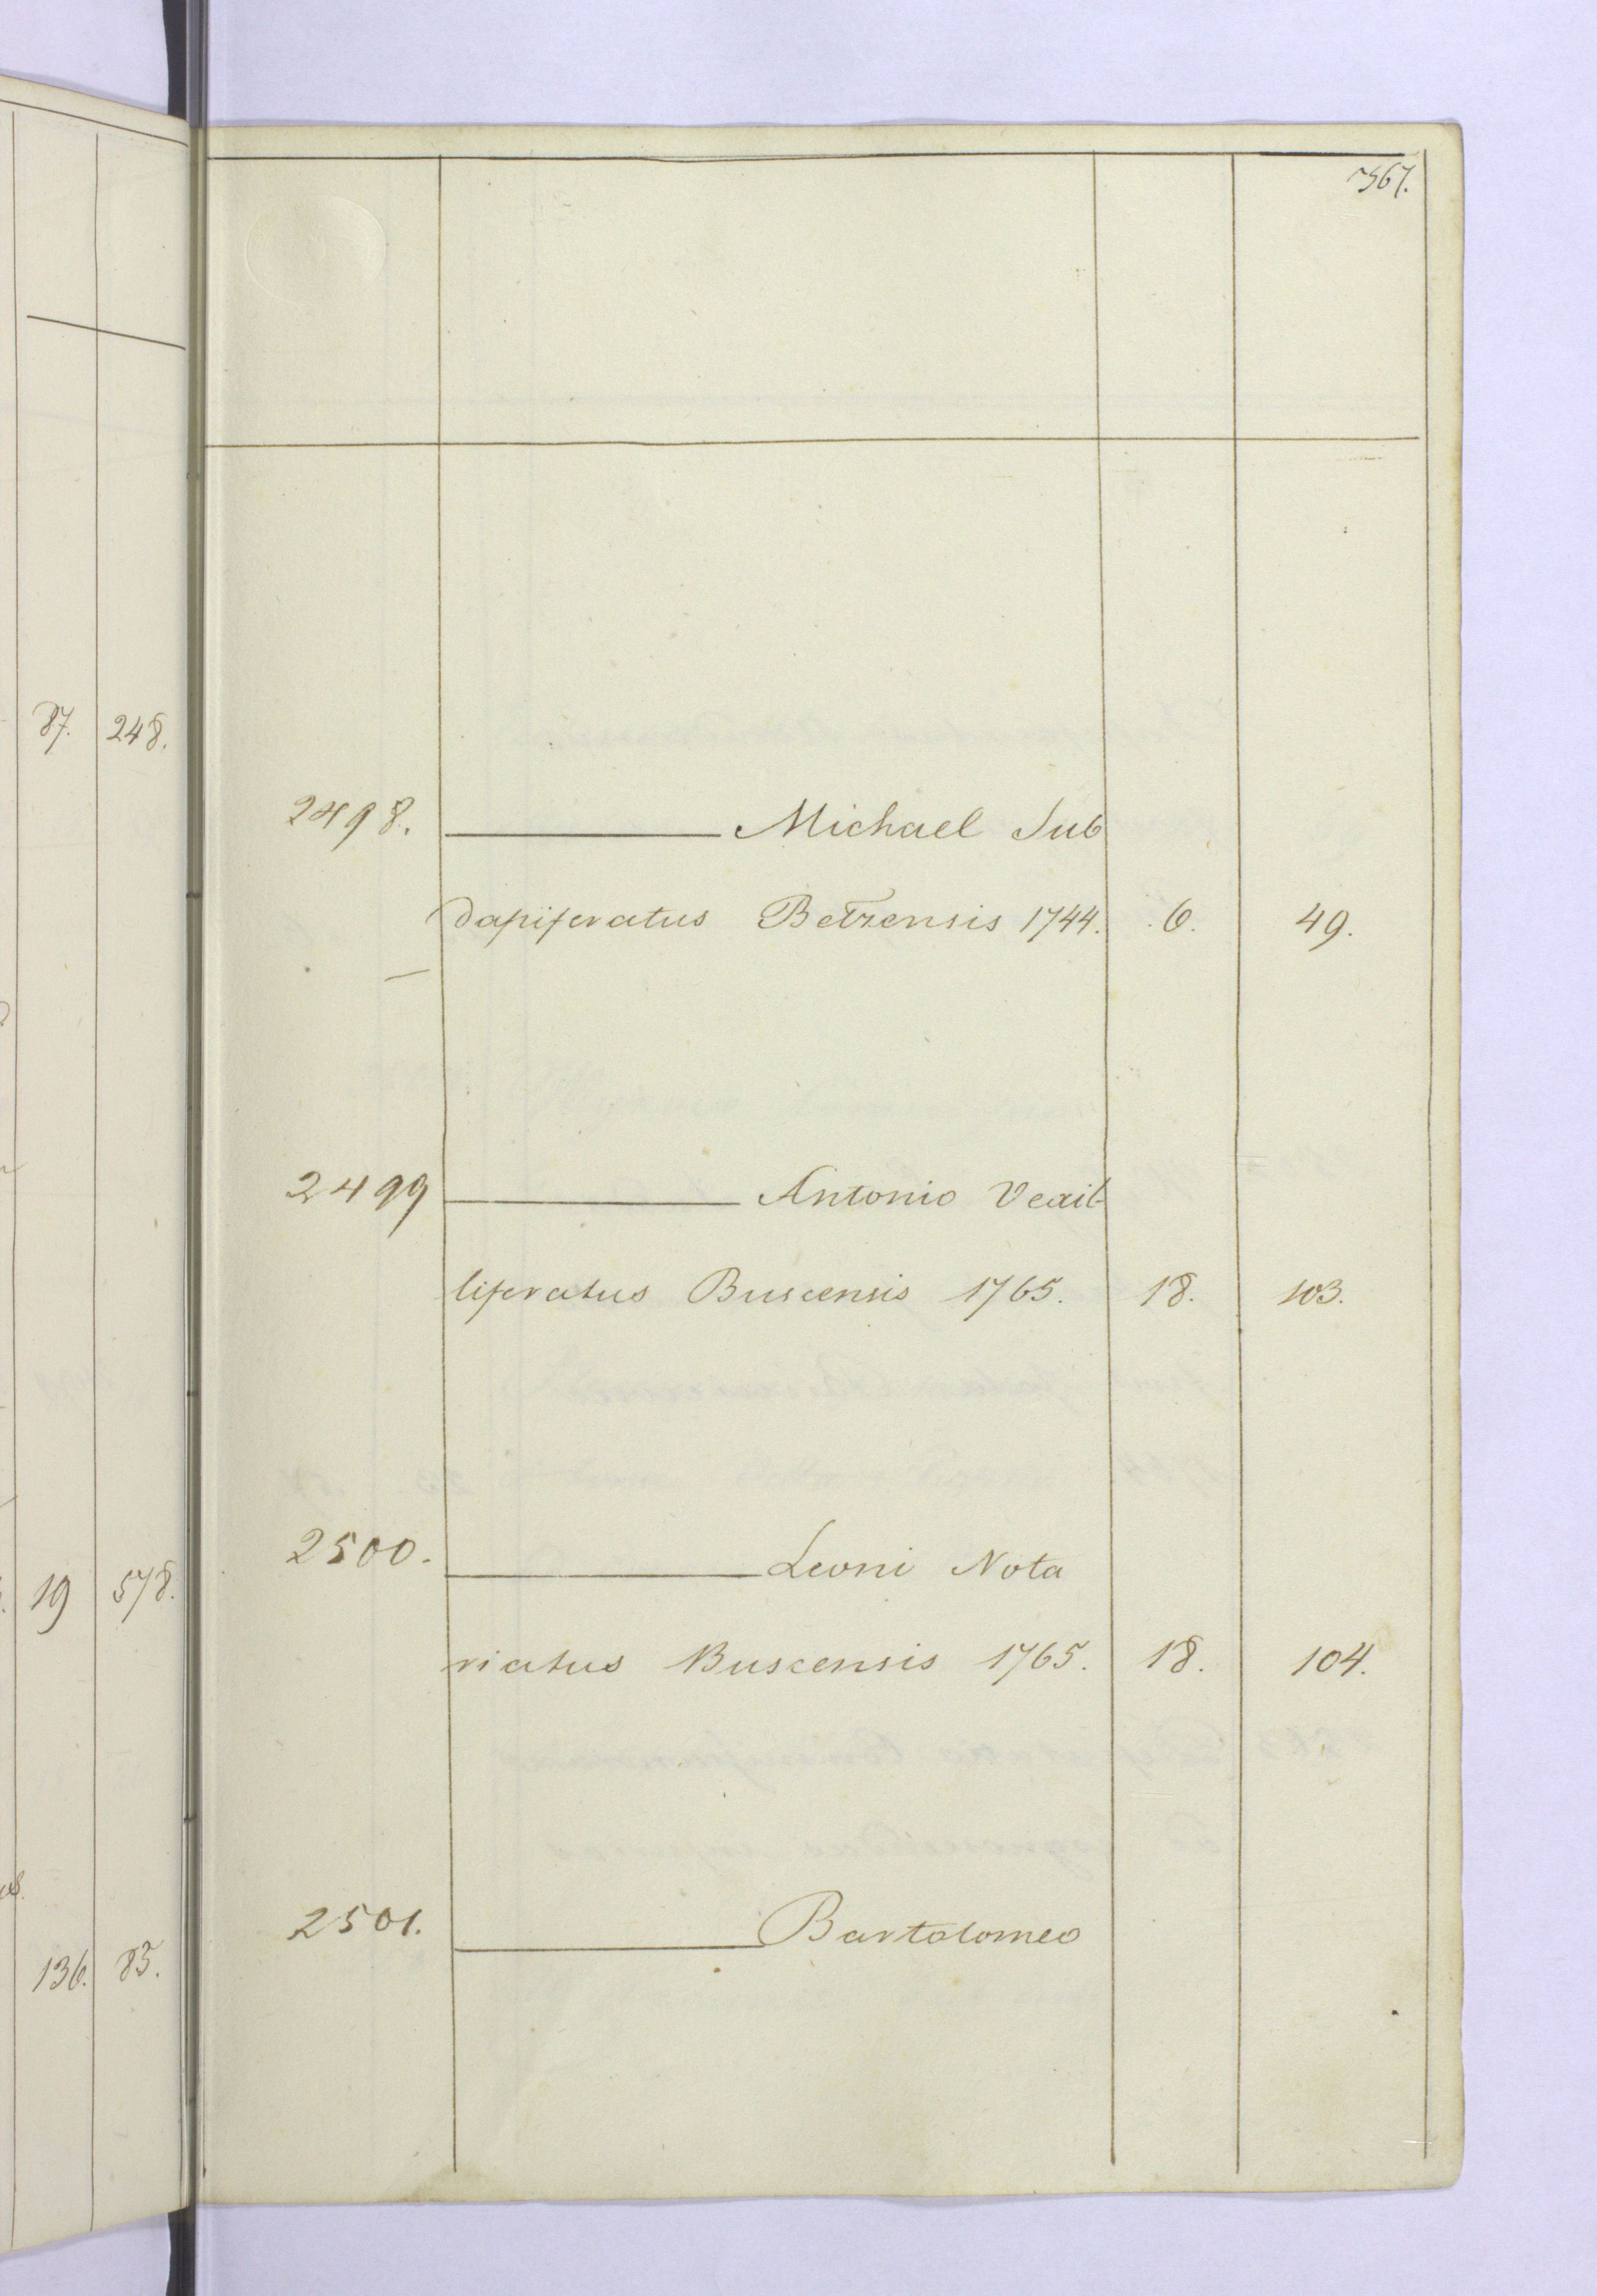 87. 248.
19 578.
136. 83.
367.
2498. Michael Sub
dapiferatus Betzensis 1744. 6. 49.
2499 Antonio Vexil
liferatus Buscensis 1765. 18. 103.
2500. Leoni Nota
riatus Buscensis 1765. 18. 104.
2501. Bartolomeo